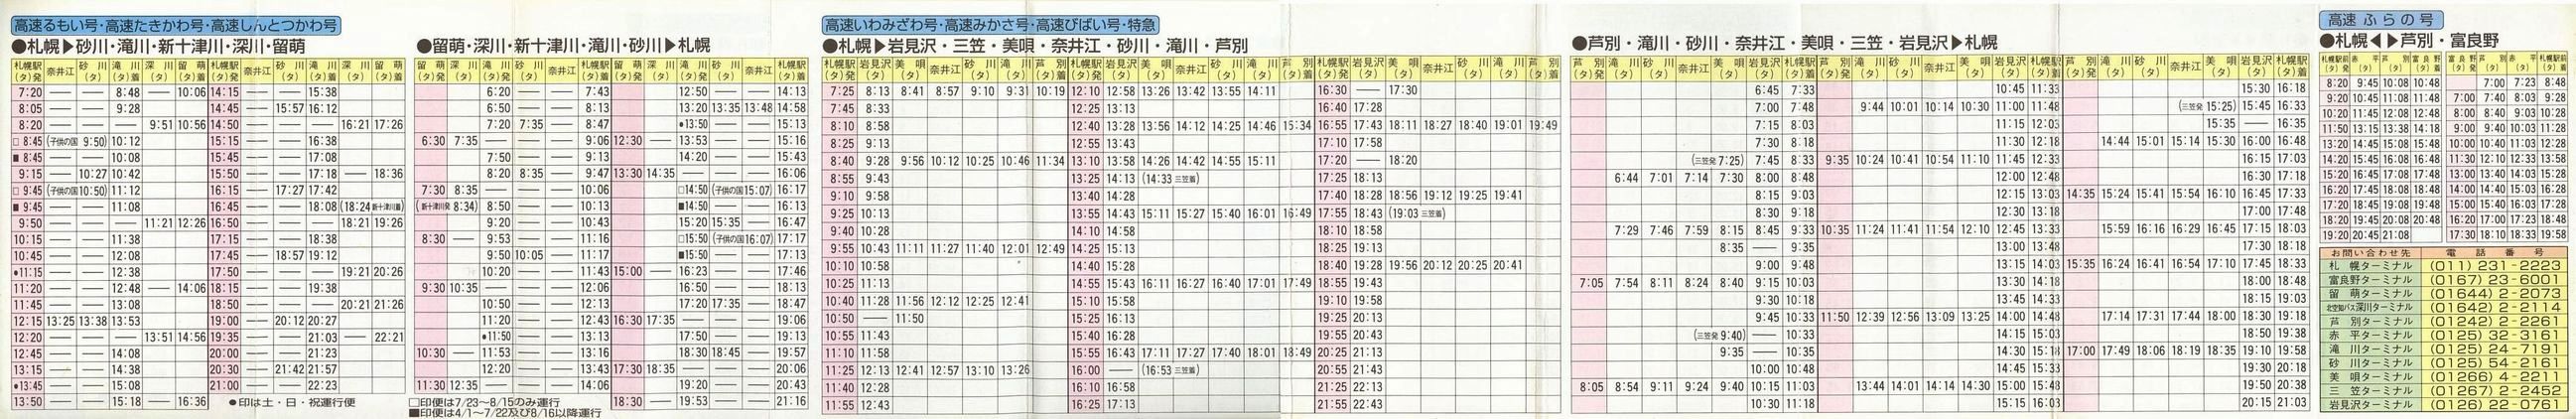 高速るもい号・高速たきかわ号・高速しんとつかわ号
●札幌▶砂川・滝川・新十津川・深川・留萌
札幌駅(タ)発 奈井江 砂川(タ) 滝川(タ) 深川(タ) 留萌(タ)着 札幌駅(タ)発 奈井江 砂川(タ) 滝川(タ)着 深川(タ) 留萌(タ)着
7:20 ― ― 8:48 ― 10:06 14:15 ― ― 15:38
8:05 ― ― 9:28 14:45 ― 15:57 16:12
8:20 ― ― ― 9:51 10:56 14:50 ― ― ― 16:21 17:26
□8:45 (子供の国 9:50) 10:12 15:15 ― ― 16:38
■8:45 ― ― 10:08 15:45 ― ― 17:08
9:15 ― 10:27 10:42 15:50 ― ― 17:18 ― 18:36
□9:45 (子供の国 10:50) 11:12 16:15 ― 17:27 17:42
■9:45 ― ― 11:08 16:45 ― ― 18:08 (18:24 新十津川着)
9:50 ― ― ― 11:21 12:26 16:50 ― ― ― 18:21 19:26
10:15 ― ― 11:38 17:15 ― ― 18:38
10:45 ― ― 12:08 17:45 ― 18:57 19:12
●11:15 ― ― 12:38 17:50 ― ― ― 19:21 20:26
11:20 ― ― 12:48 ― 14:06 18:15 ― ― 19:38
11:45 ― ― 13:08 18:50 ― ― ― 20:21 21:26
12:15 13:25 13:38 13:53 19:00 ― 20:12 20:27
12:20 ― ― ― 13:51 14:56 19:35 ― ― 21:03 ― 22:21
12:45 ― ― 14:08 20:00 ― ― 21:23
13:15 ― ― 14:38 20:30 ― 21:42 21:57
●13:45 ― ― 15:08 21:00 ― ― 22:23
13:50 ― ― 15:18 ― 16:36 ●印は土・日・祝運行便
●留萌・深川・新十津川・滝川・砂川▶札幌
留萌(タ)発 深川(タ) 滝川(タ) 砂川(タ) 奈井江 札幌駅(タ)着 留萌(タ)発 深川(タ) 滝川(タ)発 砂川(タ) 奈井江 札幌駅(タ)着
6:20 ― ― 7:43 12:50 ― ― 14:13
6:50 ― ― 8:13 13:20 13:35 13:48 14:58
7:20 7:35 ― 8:47 ●13:50 ― ― 15:13
6:30 7:35 ― ― ― 9:06 12:30 ― 13:53 ― ― 15:16
7:50 ― ― 9:13 14:20 ― ― 15:43
8:20 8:35 ― 9:47 13:30 14:35 ― ― ― 16:06
7:30 8:35 ― ― ― 10:06 □14:50 (子供の国 15:07) 16:17
(新十津川発 8:34) 8:50 ― ― 10:13 ■14:50 ― ― 16:13
9:20 ― ― 10:43 15:20 15:35 ― 16:47
8:30 ― 9:53 ― ― 11:16 □15:50 (子供の国 16:07) 17:17
9:50 10:05 ― 11:17 ■15:50 ― ― 17:13
10:20 ― ― 11:43 15:00 ― 16:23 ― ― 17:46
9:30 10:35 ― ― ― 12:06 16:50 ― ― 18:13
10:50 ― ― 12:13 17:20 17:35 ― 18:47
11:20 ― ― 12:43 16:30 17:35 ― ― ― 19:06
●11:50 ― ― 13:13 17:50 ― ― 19:13
10:30 ― 11:53 ― ― 13:16 18:30 18:45 ― 19:57
12:20 ― ― 13:43 17:30 18:35 ― ― ― 20:06
11:30 12:35 ― ― ― 14:06 19:20 ― ― 20:43
□印便は7/23～8/15のみ運行 18:30 ― 19:53 ― ― 21:16
■印便は4/1～7/22及び8/16以降運行
高速いわみざわ号・高速みかさ号・高速びばい号・特急
●札幌▶岩見沢・三笠・美唄・奈井江・砂川・滝川・芦別
札幌駅(タ)発 岩見沢(タ) 美唄(タ) 奈井江 砂川(タ) 滝川(タ) 芦別(タ)着 札幌駅(タ)発 岩見沢(タ) 美唄(タ) 奈井江 砂川(タ) 滝川(タ) 芦別(タ)着 札幌駅(タ)発 岩見沢(タ) 美唄(タ) 奈井江 砂川(タ) 滝川(タ) 芦別(タ)着
7:25 8:13 8:41 8:57 9:10 9:31 10:19 12:10 12:58 13:26 13:42 13:55 14:11 16:30 ― 17:30
7:45 8:33 12:25 13:13 16:40 17:28
8:10 8:58 12:40 13:28 13:56 14:12 14:25 14:46 15:34 16:55 17:43 18:11 18:27 18:40 19:01 19:49
8:25 9:13 12:55 13:43 17:10 17:58
8:40 9:28 9:56 10:12 10:25 10:46 11:34 13:10 13:58 14:26 14:42 14:55 15:11 17:20 ― 18:20
8:55 9:43 13:25 14:13 (14:33 三笠着) 17:25 18:13
9:10 9:58 13:40 14:28 17:40 18:28 18:56 19:12 19:25 19:41
9:25 10:13 13:55 14:43 15:11 15:27 15:40 16:01 16:49 17:55 18:43 (19:03 三笠着)
9:40 10:28 14:10 14:58 18:10 18:58
9:55 10:43 11:11 11:27 11:40 12:01 12:49 14:25 15:13 18:25 19:13
10:10 10:58 14:40 15:28 18:40 19:28 19:56 20:12 20:25 20:41
10:25 11:13 14:55 15:43 16:11 16:27 16:40 17:01 17:49 18:55 19:43
10:40 11:28 11:56 12:12 12:25 12:41 15:10 15:58 19:10 19:58
10:50 ― 11:50 15:25 16:13 19:25 20:13
10:55 11:43 15:40 16:28 19:55 20:43
11:10 11:58 15:55 16:43 17:11 17:27 17:40 18:01 18:49 20:25 21:13
11:25 12:13 12:41 12:57 13:10 13:26 16:00 ― (16:53 三笠着) 20:55 21:43
11:40 12:28 16:10 16:58 21:25 22:13
11:55 12:43 16:25 17:13 21:55 22:43
●芦別・滝川・砂川・奈井江・美唄・三笠・岩見沢▶札幌
芦別(タ)発 滝川(タ) 砂川(タ) 奈井江 美唄(タ) 岩見沢(タ)発 札幌駅(タ)着 芦別(タ)発 滝川(タ) 砂川(タ) 奈井江 美唄(タ) 岩見沢(タ)発 札幌駅(タ)着 芦別(タ)発 滝川(タ) 砂川(タ) 奈井江 美唄(タ) 岩見沢(タ)発 札幌駅(タ)着
6:45 7:33 10:45 11:33 15:30 16:18
7:00 7:48 9:44 10:01 10:14 10:30 11:00 11:48 (三笠発 15:25) 15:45 16:33
7:15 8:03 11:15 12:03 15:35 ― 16:35
7:30 8:18 11:30 12:18 14:44 15:01 15:14 15:30 16:00 16:48
(三笠発 7:25) 7:45 8:33 9:35 10:24 10:41 10:54 11:10 11:45 12:33 16:15 17:03
6:44 7:01 7:14 7:30 8:00 8:48 12:00 12:48 16:30 17:18
8:15 9:03 12:15 13:03 14:35 15:24 15:41 15:54 16:10 16:45 17:33
8:30 9:18 12:30 13:18 17:00 17:48
7:29 7:46 7:59 8:15 8:45 9:33 10:35 11:24 11:41 11:54 12:10 12:45 13:33 15:59 16:16 16:29 16:45 17:15 18:03
8:35 ― 9:35 13:00 13:48 17:30 18:18
9:00 9:48 13:15 14:03 15:35 16:24 16:41 16:54 17:10 17:45 18:33
7:05 7:54 8:11 8:24 8:40 9:15 10:03 13:30 14:18 18:00 18:48
9:30 10:18 13:45 14:33 18:15 19:03
9:45 10:33 11:50 12:39 12:56 13:09 13:25 14:00 14:48 17:14 17:31 17:44 18:00 18:30 19:18
(三笠発 9:40) ― 10:33 14:15 15:03 18:50 19:38
9:35 ― 10:35 14:30 15:18 17:00 17:49 18:06 18:19 18:35 19:10 19:58
10:00 10:48 14:45 15:33 19:30 20:18
8:05 8:54 9:11 9:24 9:40 10:15 11:03 13:44 14:01 14:14 14:30 15:00 15:48 19:50 20:38
10:30 11:18 15:15 16:03 20:15 21:03
高速ふらの号
●札幌◀▶芦別・富良野
札幌駅前(タ)発 赤平(タ) 芦別(タ) 富良野(タ)着 富良野(タ)発 芦別(タ) 赤平(タ) 札幌駅前(タ)着
8:20 9:45 10:08 10:48 7:00 7:23 8:48
9:20 10:45 11:08 11:48 7:00 7:40 8:03 9:28
10:20 11:45 12:08 12:48 8:00 8:40 9:03 10:28
11:50 13:15 13:38 14:18 9:00 9:40 10:03 11:28
13:20 14:45 15:08 15:48 10:00 10:40 11:03 12:28
14:20 15:45 16:08 16:48 11:30 12:10 12:33 13:58
15:20 16:45 17:08 17:48 13:00 13:40 14:03 15:28
16:20 17:45 18:08 18:48 14:00 14:40 15:03 16:28
17:20 18:45 19:08 19:48 15:00 15:40 16:03 17:28
18:20 19:45 20:08 20:48 16:20 17:00 17:23 18:48
19:20 20:45 21:08 17:30 18:10 18:33 19:58
お問い合わせ先 電話番号
札幌ターミナル (011) 231-2223
富良野ターミナル (0167) 23-6001
留萌ターミナル (01644) 2-2073
北空知バス深川ターミナル (01642) 2-2114
芦別ターミナル (01242) 2-2261
赤平ターミナル (0125) 32-3161
滝川ターミナル (0125) 24-7191
砂川ターミナル (0125) 54-2161
美唄ターミナル (01266) 4-2211
三笠ターミナル (01267) 2-2452
岩見沢ターミナル (0126) 22-0761